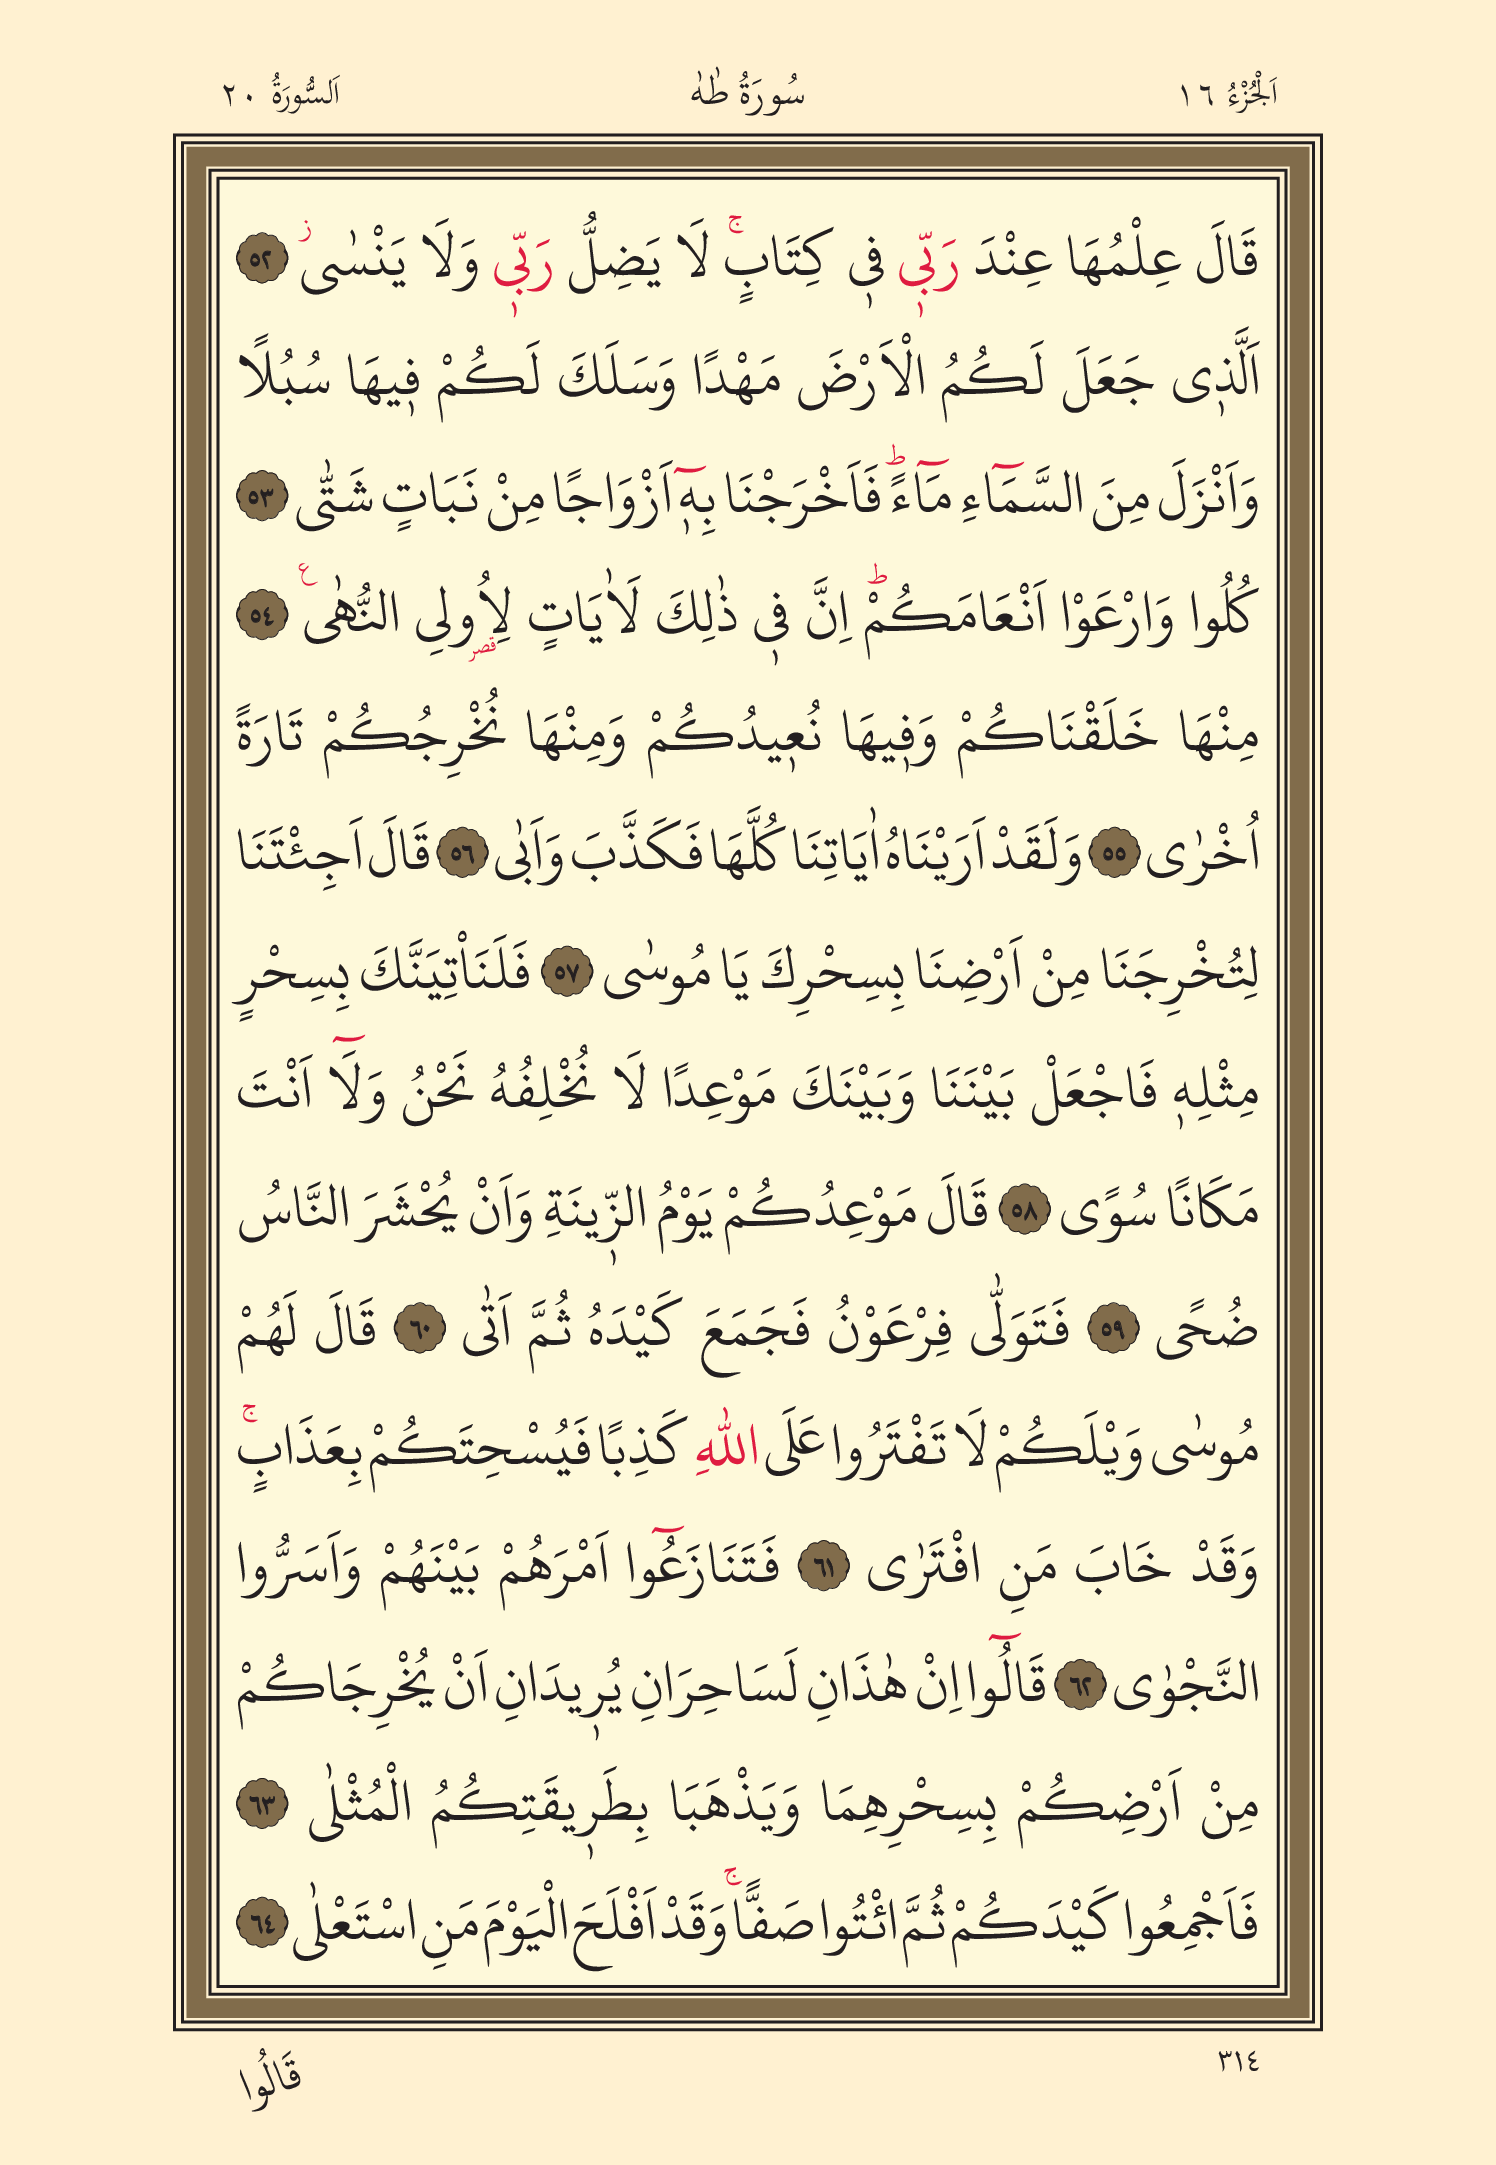 اَلْجُزْءُ ١٦ سُورَةُ طٰهٰ اَلسُّورَةُ ٢٠
قَالَ عِلْمُهَا عِنْدَ رَبّ۪ي ف۪ي كِتَابٍۚ لَا يَضِلُّ رَبّ۪ي وَلَا يَنْسٰىۘ ﴿٥٢﴾
اَلَّذ۪ي جَعَلَ لَكُمُ الْاَرْضَ مَهْدًا وَسَلَكَ لَكُمْ ف۪يهَا سُبُلًا
وَاَنْزَلَ مِنَ السَّمَٓاءِ مَٓاءًۜ فَاَخْرَجْنَا بِه۪ٓ اَزْوَاجًا مِنْ نَبَاتٍ شَتّٰى ﴿٥٣﴾
كُلُوا وَارْعَوْا اَنْعَامَكُمْۜ اِنَّ ف۪ي ذٰلِكَ لَاٰيَاتٍ لِاُولِي قصر النُّهٰى ع ﴿٥٤﴾
مِنْهَا خَلَقْنَاكُمْ وَف۪يهَا نُع۪يدُكُمْ وَمِنْهَا نُخْرِجُكُمْ تَارَةً
اُخْرٰى ﴿٥٥﴾ وَلَقَدْ اَرَيْنَاهُ اٰيَاتِنَا كُلَّهَا فَكَذَّبَ وَاَبٰى ﴿٥٦﴾ قَالَ اَجِئْتَنَا
لِتُخْرِجَنَا مِنْ اَرْضِنَا بِسِحْرِكَ يَا مُوسٰى ﴿٥٧﴾ فَلَنَاْتِيَنَّكَ بِسِحْرٍ
مِثْلِه۪ فَاجْعَلْ بَيْنَنَا وَبَيْنَكَ مَوْعِدًا لَا نُخْلِفُهُ نَحْنُ وَلَٓا اَنْتَ
مَكَانًا سُوًى ﴿٥٨﴾ قَالَ مَوْعِدُكُمْ يَوْمُ الزّ۪ينَةِ وَاَنْ يُحْشَرَ النَّاسُ
ضُحًى ﴿٥٩﴾ فَتَوَلّٰى فِرْعَوْنُ فَجَمَعَ كَيْدَهُ ثُمَّ اَتٰى ﴿٦٠﴾ قَالَ لَهُمْ
مُوسٰى وَيْلَكُمْ لَا تَفْتَرُوا عَلَى اللّٰهِ كَذِبًا فَيُسْحِتَكُمْ بِعَذَابٍۚ
وَقَدْ خَابَ مَنِ افْتَرٰى ﴿٦١﴾ فَتَنَازَعُٓوا اَمْرَهُمْ بَيْنَهُمْ وَاَسَرُّوا
النَّجْوٰى ﴿٦٢﴾ قَالُٓوا اِنْ هٰذَانِ لَسَاحِرَانِ يُر۪يدَانِ اَنْ يُخْرِجَاكُمْ
مِنْ اَرْضِكُمْ بِسِحْرِهِمَا وَيَذْهَبَا بِطَر۪يقَتِكُمُ الْمُثْلٰى ﴿٦٣﴾
فَاَجْمِعُوا كَيْدَكُمْ ثُمَّ ائْتُوا صَفًّاۚ وَقَدْ اَفْلَحَ الْيَوْمَ مَنِ اسْتَعْلٰى ﴿٦٤﴾
٣١٤ قَالُوا